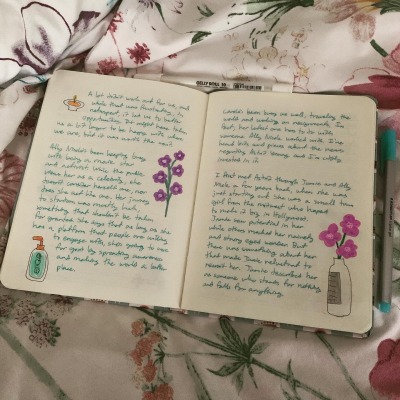 A lot didn't work out for us, and
while that was frustrating, in
retrospect, it led us to better
opportunities. It might have taken
us a bit longer to be happy with where
we are, but it was worth the wait.
Ally Nivola's been keeping busy
with being a movie star
and activist. While the public
views her as a celebrity, she
doesn't consider herself one, nor
does she use the
to stardom was mostly luck,
something that shouldn't be taken
for granted. She says that as long as she
has a platform that people are willing
to engage with, she's going to use
it for good by spreading awareness
and making the world a better
place.
GELLY ROLL 10
been busy as well, traveling the
world and working on assignments. In
fact, her latest one has to do with
someone Ally Nivola worked with. I've
heard bits and pieces about the movie
regarding Astrid Young and I'm
invested in it.
I first met Astrid through Jamie and Ally
Male a few years back, when she was
just starting out. She was a small town
girl from the midwest who hoped
to make it big in Hollywood.
Jamie saw potential in her
while others mocked her naivety
and starry eyed wonder. But
there was something about her
that made Jamie reluctant to
her. Jamie described her
as someone who stands for nothing
and falls for everything.